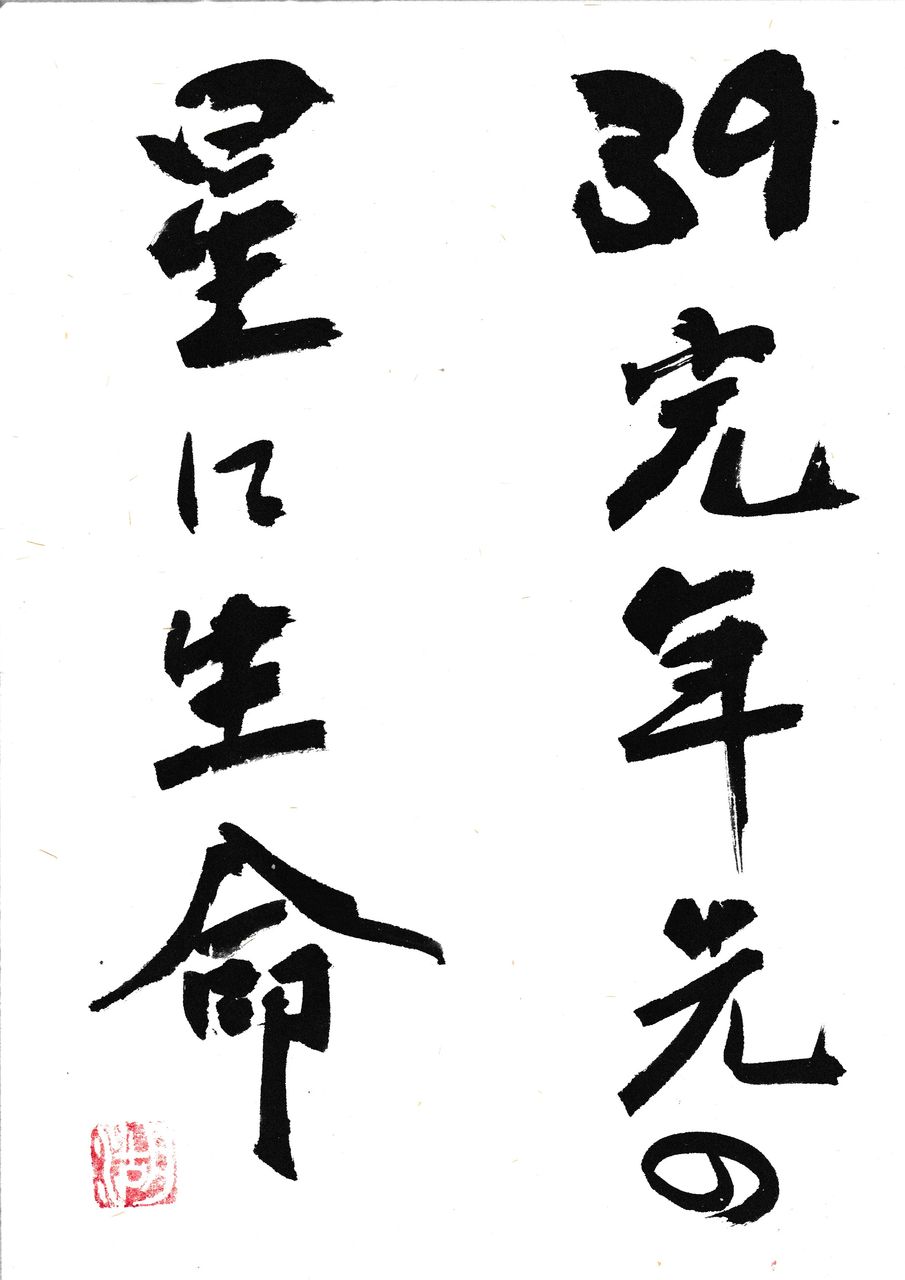 39完年光の
星に生命